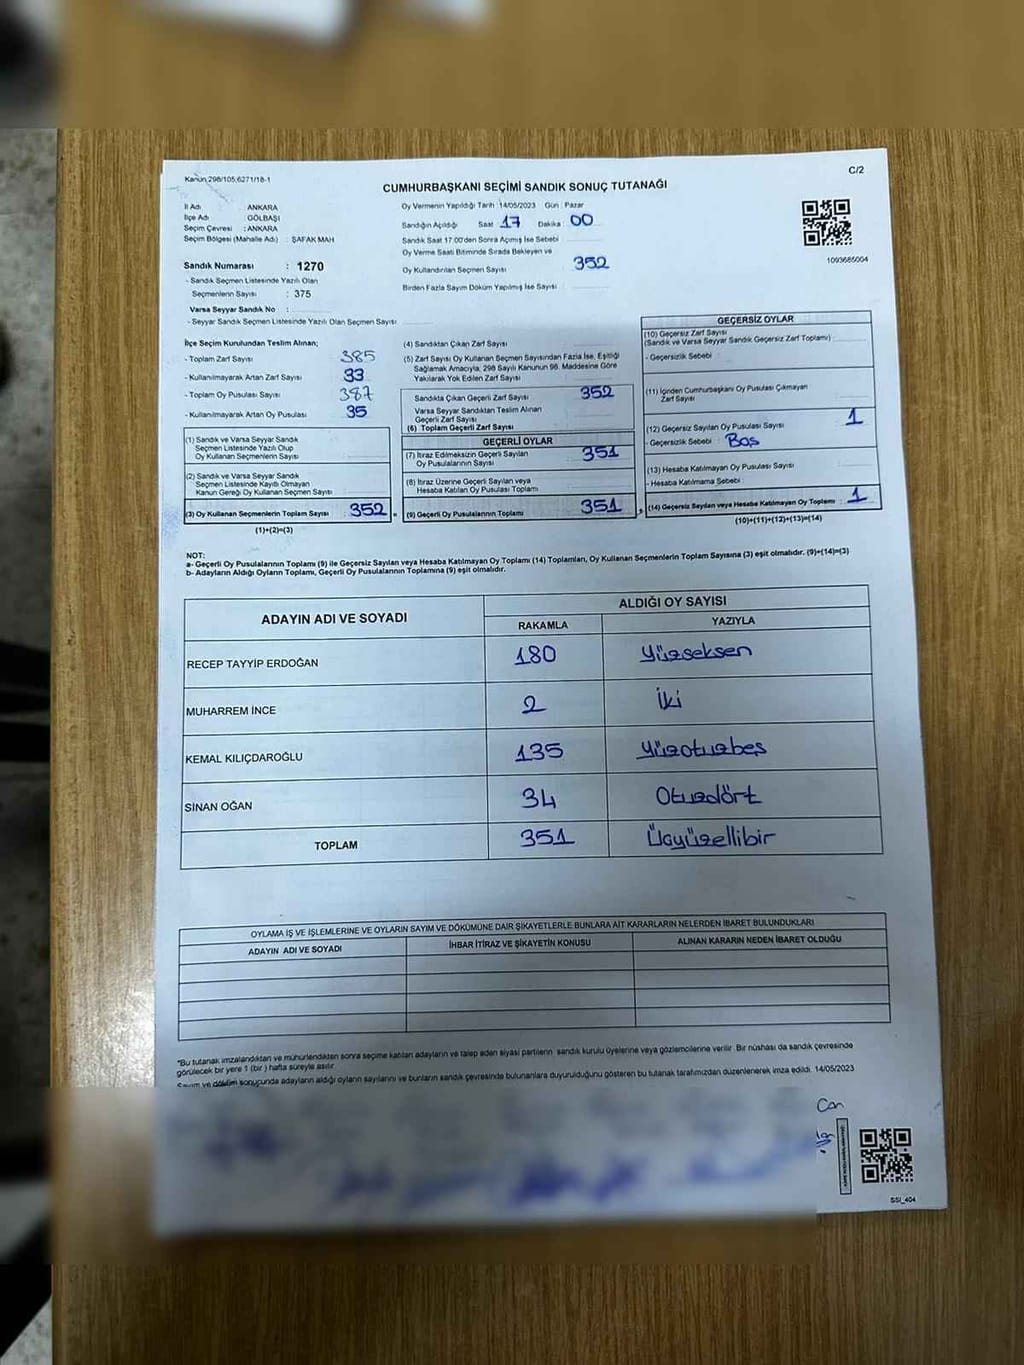 Kanun 298/105;6271/18-1
C/2
CUMHURBAŞKANI SEÇİMİ SANDIK SONUÇ TUTANAĞI
İl Adı : ANKARA
İlçe Adı : GÖLBAŞI
Seçim Çevresi : ANKARA
Seçim Bölgesi (Mahalle Adı) : ŞAFAK MAH
Sandık Numarası : 1270
- Sandık Seçmen Listesinde Yazılı Olan
Seçmenlerin Sayısı : 375
Varsa Seyyar Sandık No :
- Seyyar Sandık Seçmen Listesinde Yazılı Olan Seçmen Sayısı
Oy Vermenin Yapıldığı Tarih :14/05/2023 Gün : Pazar
Sandığın Açıldığı Saat 17 Dakika 00
Sandık Saat 17:00'den Sonra Açılmış İse Sebebi
Oy Verme Saati Bitiminde Sırada Bekleyen ve
Oy Kullandırılan Seçmen Sayısı 352
Birden Fazla Sayım Döküm Yapılmış İse Sayısı :
1093685004
İlçe Seçim Kurulundan Teslim Alınan;
- Toplam Zarf Sayısı 385
- Kullanılmayarak Artan Zarf Sayısı 33
- Toplam Oy Pusulası Sayısı 387
- Kullanılmayarak Artan Oy Pusulası 35
(1) Sandık ve Varsa Seyyar Sandık
Seçmen Listesinde Yazılı Olup
Oy Kullanan Seçmenlerin Sayısı
(2) Sandık ve Varsa Seyyar Sandık
Seçmen Listesinde Kayıtlı Olmayan
Kanun Gereği Oy Kullanan Seçmen Sayısı
(3) Oy Kullanan Seçmenlerin Toplam Sayısı 352
(1)+(2)=(3)
(4) Sandıktan Çıkan Zarf Sayısı
(5) Zarf Sayısı Oy Kullanan Seçmen Sayısından Fazla İse, Eşitliği
Sağlamak Amacıyla, 298 Sayılı Kanunun 98. Maddesine Göre
Yakılarak Yok Edilen Zarf Sayısı
Sandıkta Çıkan Geçerli Zarf Sayısı 352
Varsa Seyyar Sandıktan Teslim Alınan
Geçerli Zarf Sayısı
(6) Toplam Geçerli Zarf Sayısı
GEÇERLİ OYLAR
(7) İtiraz Edilmeksizin Geçerli Sayılan
Oy Pusulalarının Sayısı 351
(8) İtiraz Üzerine Geçerli Sayılan veya
Hesaba Katılan Oy Pusulası Toplamı
(9) Geçerli Oy Pusulalarının Toplamı 351
GEÇERSİZ OYLAR
(10) Geçersiz Zarf Sayısı
(Sandık ve Varsa Seyyar Sandık Geçersiz Zarf Toplamı)
- Geçersizlik Sebebi
(11) İçinden Cumhurbaşkanı Oy Pusulası Çıkmayan
Zarf Sayısı
(12) Geçersiz Sayılan Oy Pusulası Sayısı 1
- Geçersizlik Sebebi : Boş
(13) Hesaba Katılmayan Oy Pusulası Sayısı
- Hesaba Katılmama Sebebi :
(14) Geçersiz Sayılan veya Hesaba Katılmayan Oy Toplamı 1
(10)+(11)+(12)+(13)=(14)
NOT:
a- Geçerli Oy Pusulalarının Toplamı (9) ile Geçersiz Sayılan veya Hesaba Katılmayan Oy Toplamı (14) Toplamları, Oy Kullanan Seçmenlerin Toplam Sayısına (3) eşit olmalıdır. (9)+(14)=(3)
b- Adayların Aldığı Oyların Toplamı, Geçerli Oy Pusulalarının Toplamına (9) eşit olmalıdır.
ADAYIN ADI VE SOYADI ALDIĞI OY SAYISI
RAKAMLA YAZIYLA
RECEP TAYYİP ERDOĞAN 180 Yüzseksen
MUHARREM İNCE 2 İki
KEMAL KILIÇDAROĞLU 135 Yüzotuzbeş
SİNAN OĞAN 34 Otuzdört
TOPLAM 351 Üçyüzellibir
OYLAMA İŞ VE İŞLEMLERİNE VE OYLARIN SAYIM VE DÖKÜMÜNE DAİR ŞİKAYETLERLE BUNLARA AİT KARARLARIN NELERDEN İBARET BULUNDUKLARI
ADAYIN ADI VE SOYADI İHBAR İTİRAZ VE ŞİKAYETİN KONUSU ALINAN KARARIN NEDEN İBARET OLDUĞU
*Bu tutanak imzalandıktan ve mühürlendikten sonra seçime katılan adayların ve talep eden siyasi partilerin sandık kurulu üyelerine veya gözlemcilerine verilir. Bir nüshası da sandık çevresinde
görülecek bir yere 1 (bir) hafta süreyle asılır.
Sayım ve döküm sonucunda adayların aldığı oyların sayılarını ve bunların sandık çevresinde bulunanlara duyurulduğunu gösteren bu tutanak tarafımızdan düzenlenerek imza edildi. 14/05/2023
Can
SSI_404